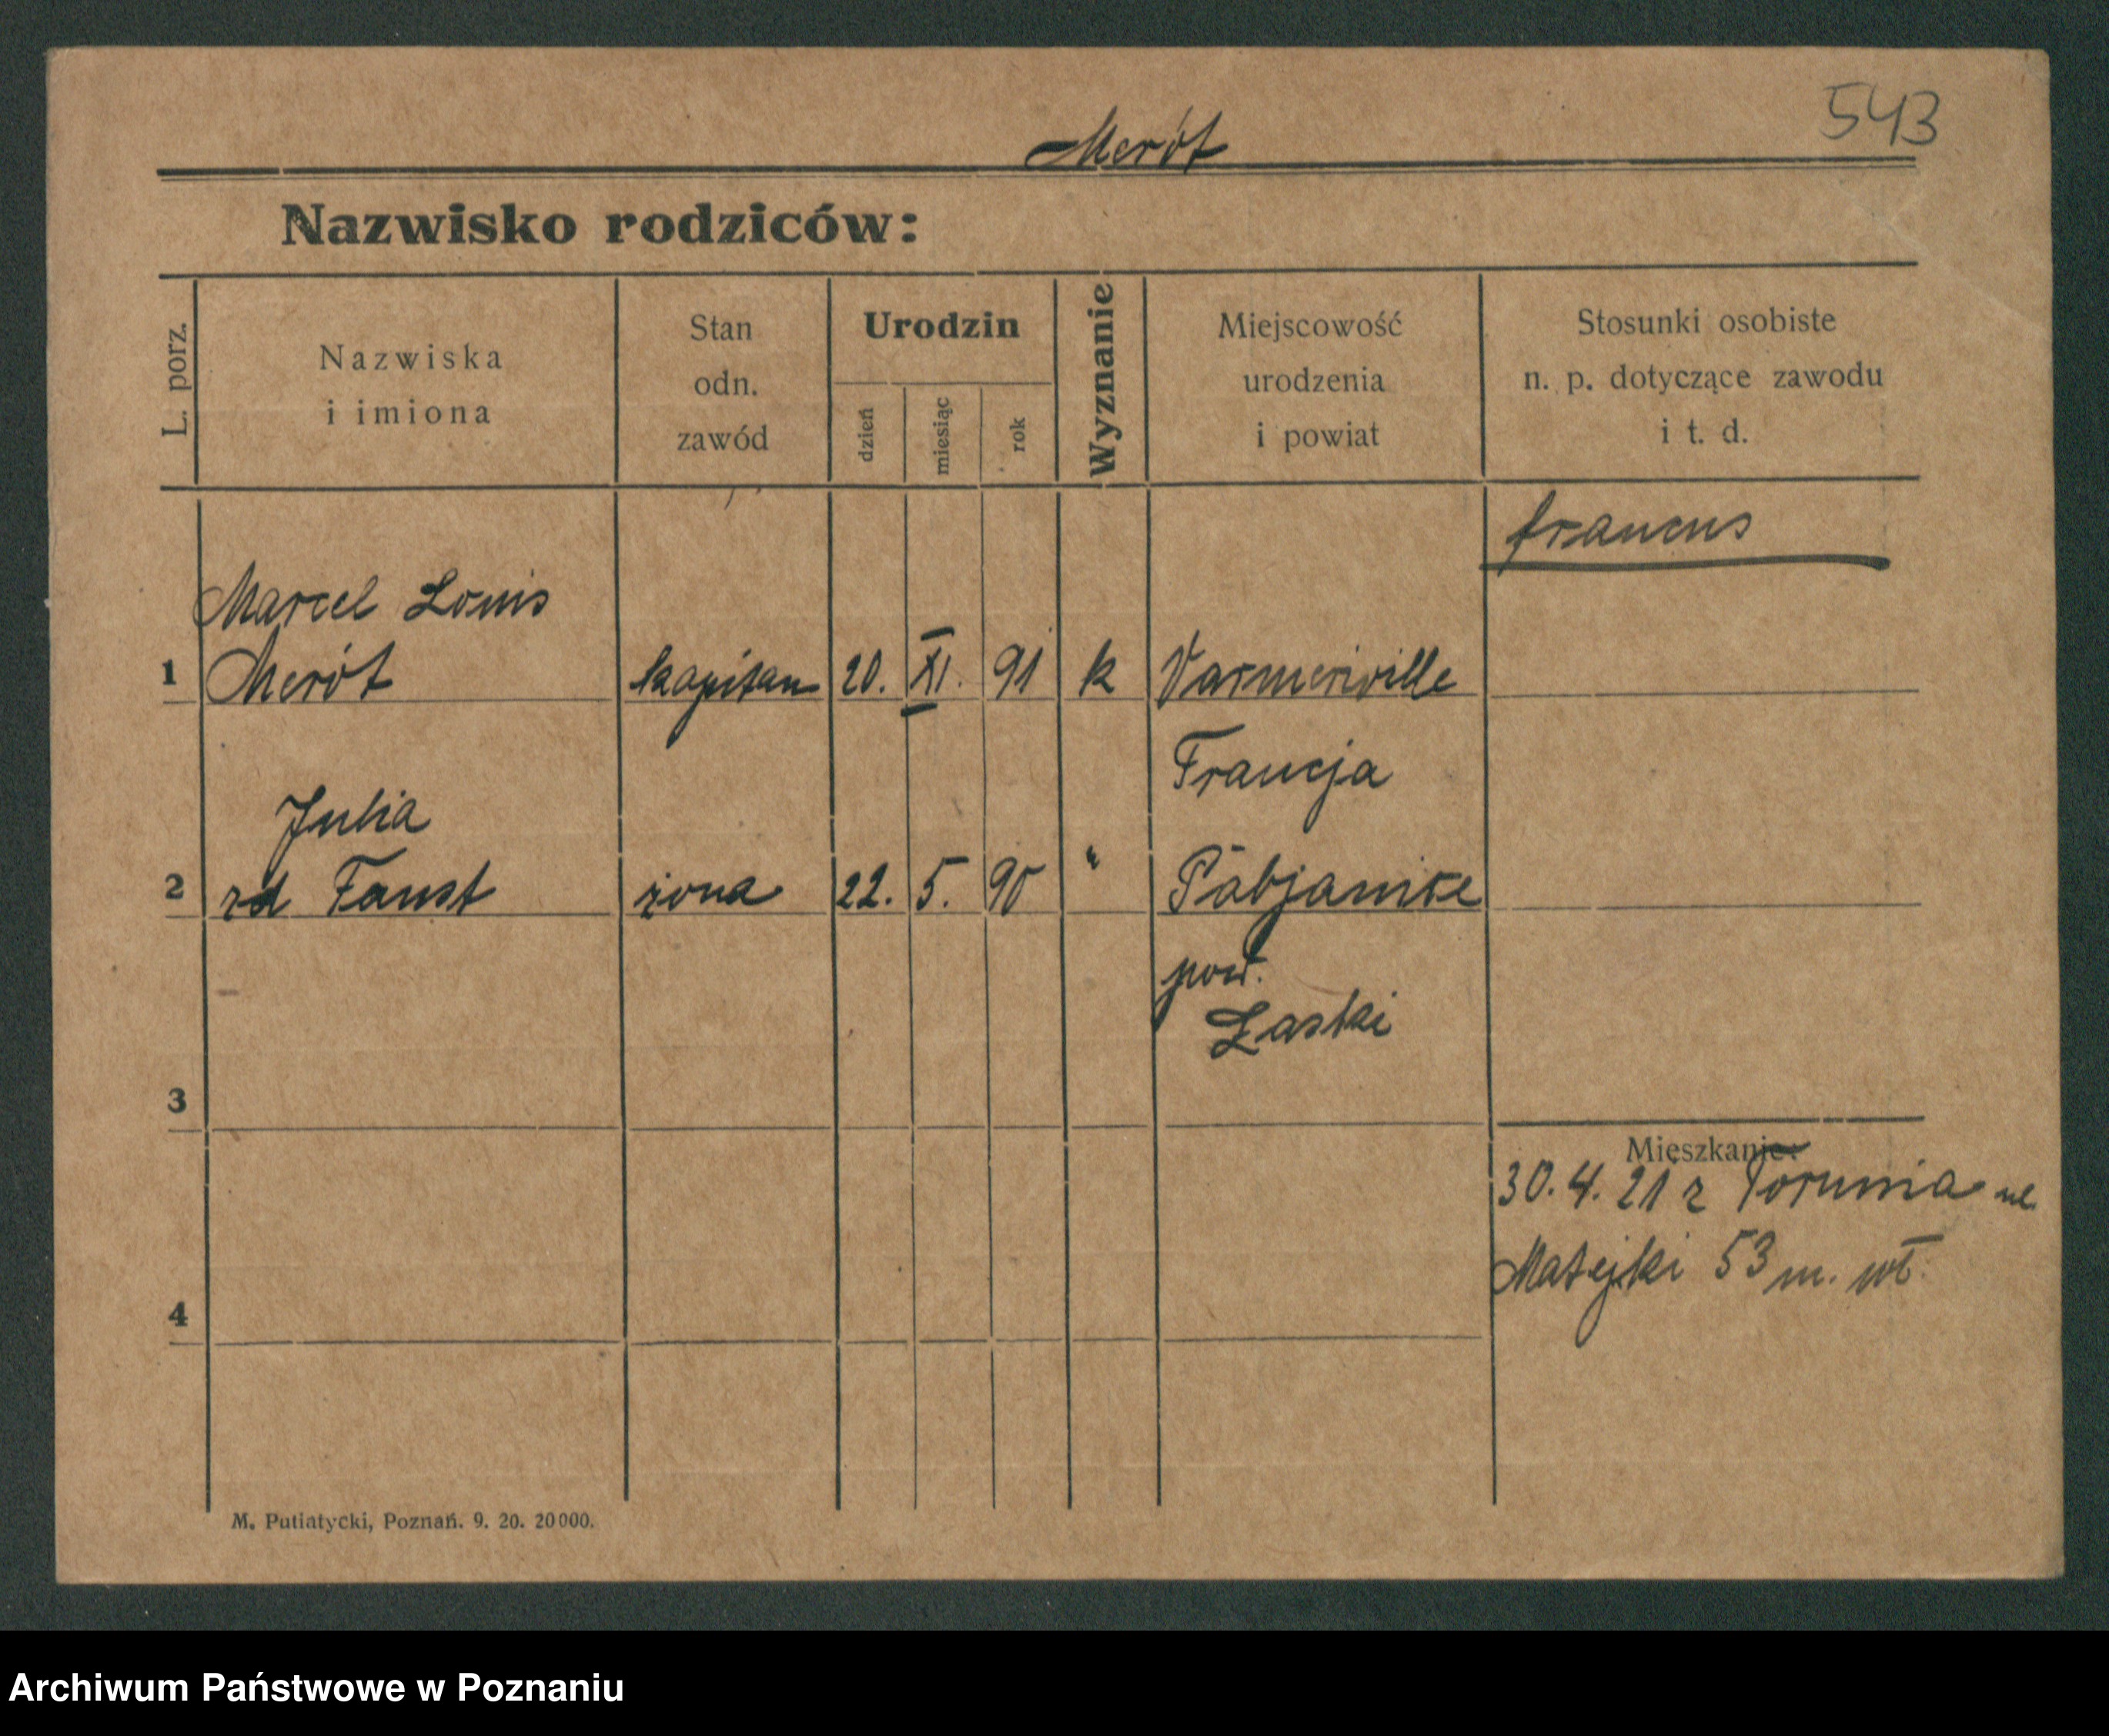 543
Merót
Nazwisko rodziców:
L. porz.
Nazwiska
i imiona
Stan
odn.
zawód
Urodzin
dzień
miesiąc
rok
Wyznanie
Miejscowość
urodzenia
i powiat
Stosunki osobiste
n. p. dotyczące zawodu
i t. d.
francus
Marcel Louis
1 Merót kapitan 20. XI. 91 k Varmeriville
Francja
Julia
2 rd Faust żona 22. 5. 90 " Pabjanice
pow.
Łaski
3
Mieszkanie:
30. 4. 21 z Torunia ul
Matejki 53 m. wł.
4
M. Putiatycki, Poznań. 9. 20. 20000.
Archiwum Państwowe w Poznaniu